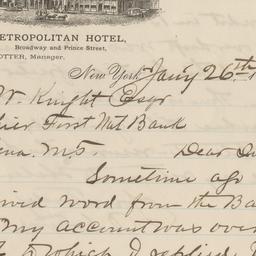 ETROPOLITAN HOTEL,
Broadway and Prince Street,
OTTER, Manager.
New York, Jan'y 26th 1
W. Knight Esqr
hier First Nat Bank
ena. M.T. Dear
Sometime ago
ived word from the Ba
my account was over
to which I replied,